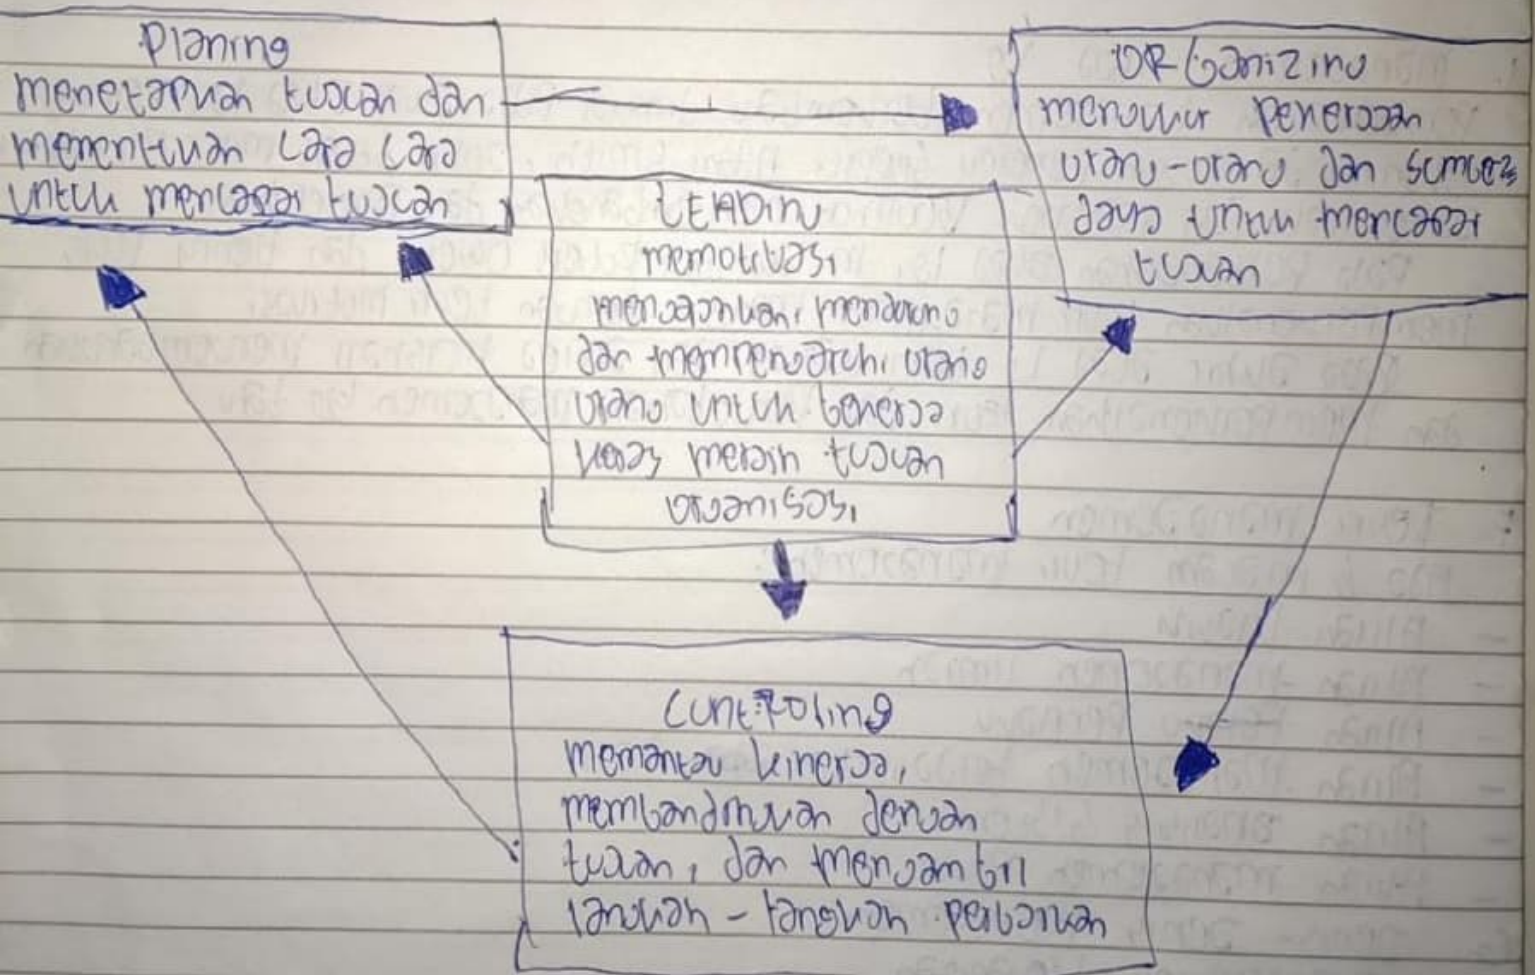 Planing
menetapkan tujuan dan
menentukan cara cara
untuk mencapai tujuan
ORGanizing
mengukur pekerjaan
orang-orang dan sumber
daya untuk mencapai
tujuan
LEADing
memotivasi
mengajarkan, mendorong
dan mempengaruhi orang
orang untuk bekerja
keras meraih tujuan
organisasi
Controling
memantau kinerja,
membandingkan dengan
tujuan, dan mengambil
langkah - langkah perbaikan